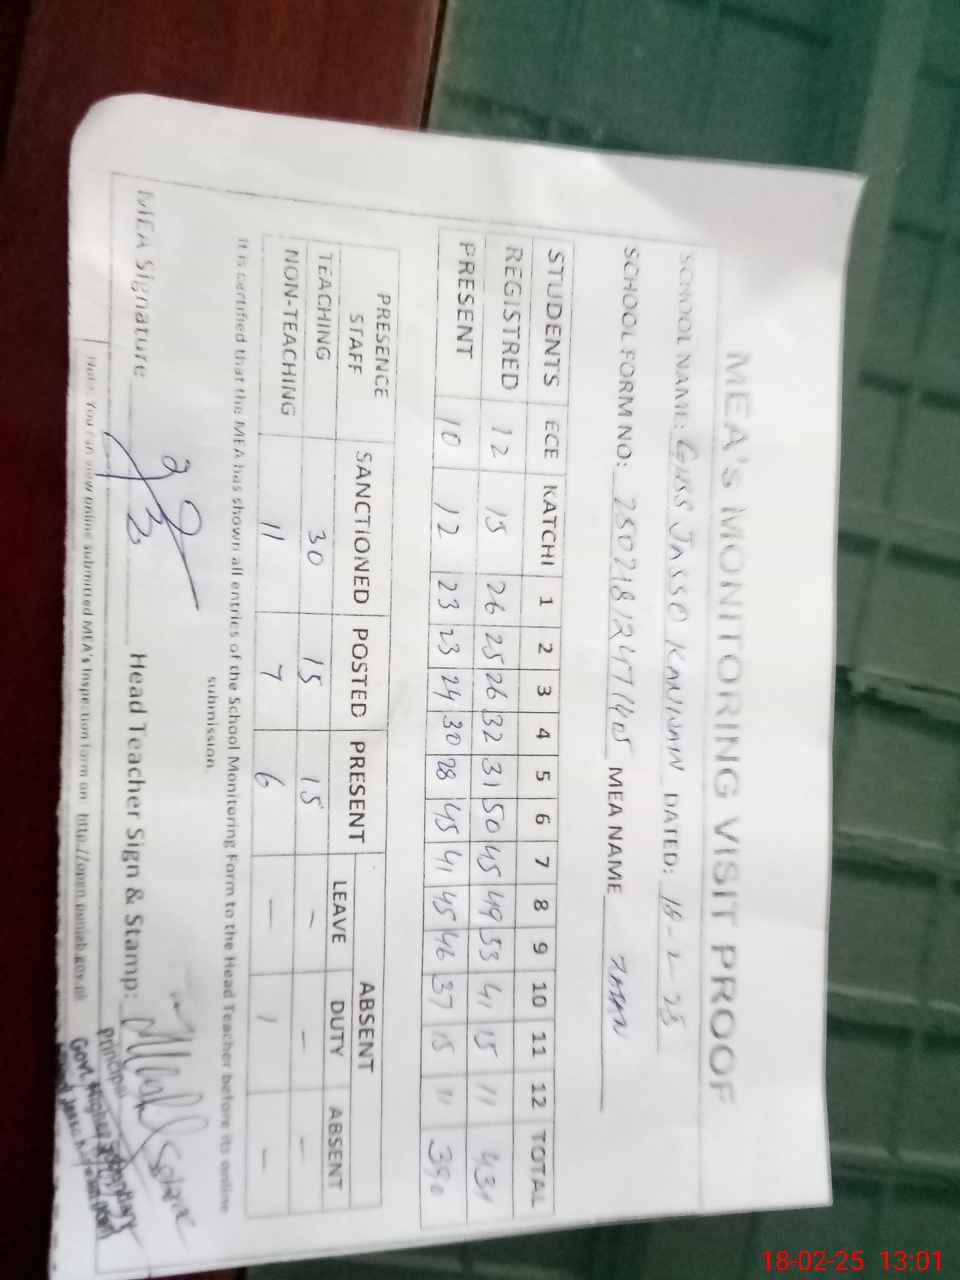 MEA's MONITORING VISIT PROOF
SCHOOL NAME: GHSS JASSO KANWAN DATED: 18-2-25
SCHOOL FORM NO: MEA NAME
STUDENTS ECE KATCHI 1 2 3 4 5 6 7 8 9 10 11 12 TOTAL
REGISTRED 12 15 26 25 26 32 31 50 45 49 53 41 15 11 431
PRESENT 10 12 23 23 24 30 28 45 41 45 46 37 15 11 390
PRESENCE STAFF SANCTIONED POSTED PRESENT ABSENT
LEAVE DUTY ABSENT
TEACHING 30 15 15 - - -
NON-TEACHING 11 7 6 - 1 -
It is certified that the MEA has shown all entries of the School Monitoring Form to the Head Teacher before its online
submission.
MEA Signature: Head Teacher Sign & Stamp:
Principal
Govt. Higher Secondary
Note. You can view online submitted MEA's Inspection form on http://open.punjab.gov.pk
18-02-25 13:01